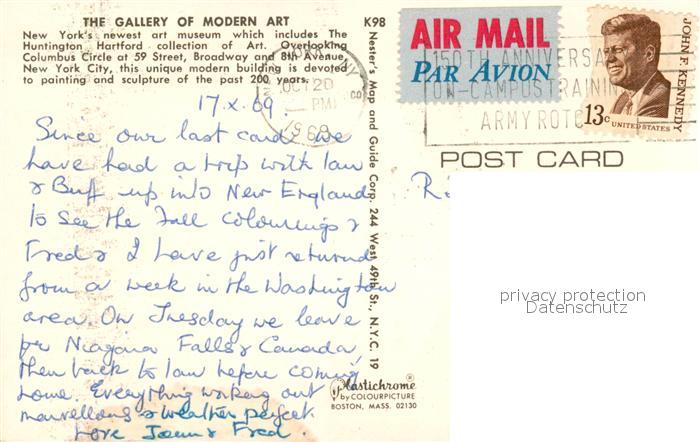 THE GALLERY OF MODERN ART
New York's newest art museum which includes The
Huntington Hartford collection of Art. Overlooking
Columbus Circle at 59 Street, Broadway and 8th Avenue,
New York City, this unique modern building is devoted
to painting and sculpture of the past 200 years.
K98
17.X.69.
Since our last card we
have had a trip with Ian
& Buff up into New England
to see the Fall Colourings &
Fred & I have just returned
from a week in the Washington
area. On Tuesday we leave
for Niagara Falls & Canada,
then back to Ian before coming
home. Everything working out
marvellous & weather perfect.
Love Joan & Fred.
Nester's Map and Guide Corp. 244 West 49th St., N.Y.C. 19
Plastichrome®
by COLOURPICTURE
BOSTON, MASS. 02130
AIR MAIL
PAR AVION
OCT 20
PM
1969
150TH ANNIVERSA
ON-CAMPUS TRAINING
ARMY ROTC
JOHN F. KENNEDY
13c UNITED STATES
POST CARD
privacy protection
Datenschutz